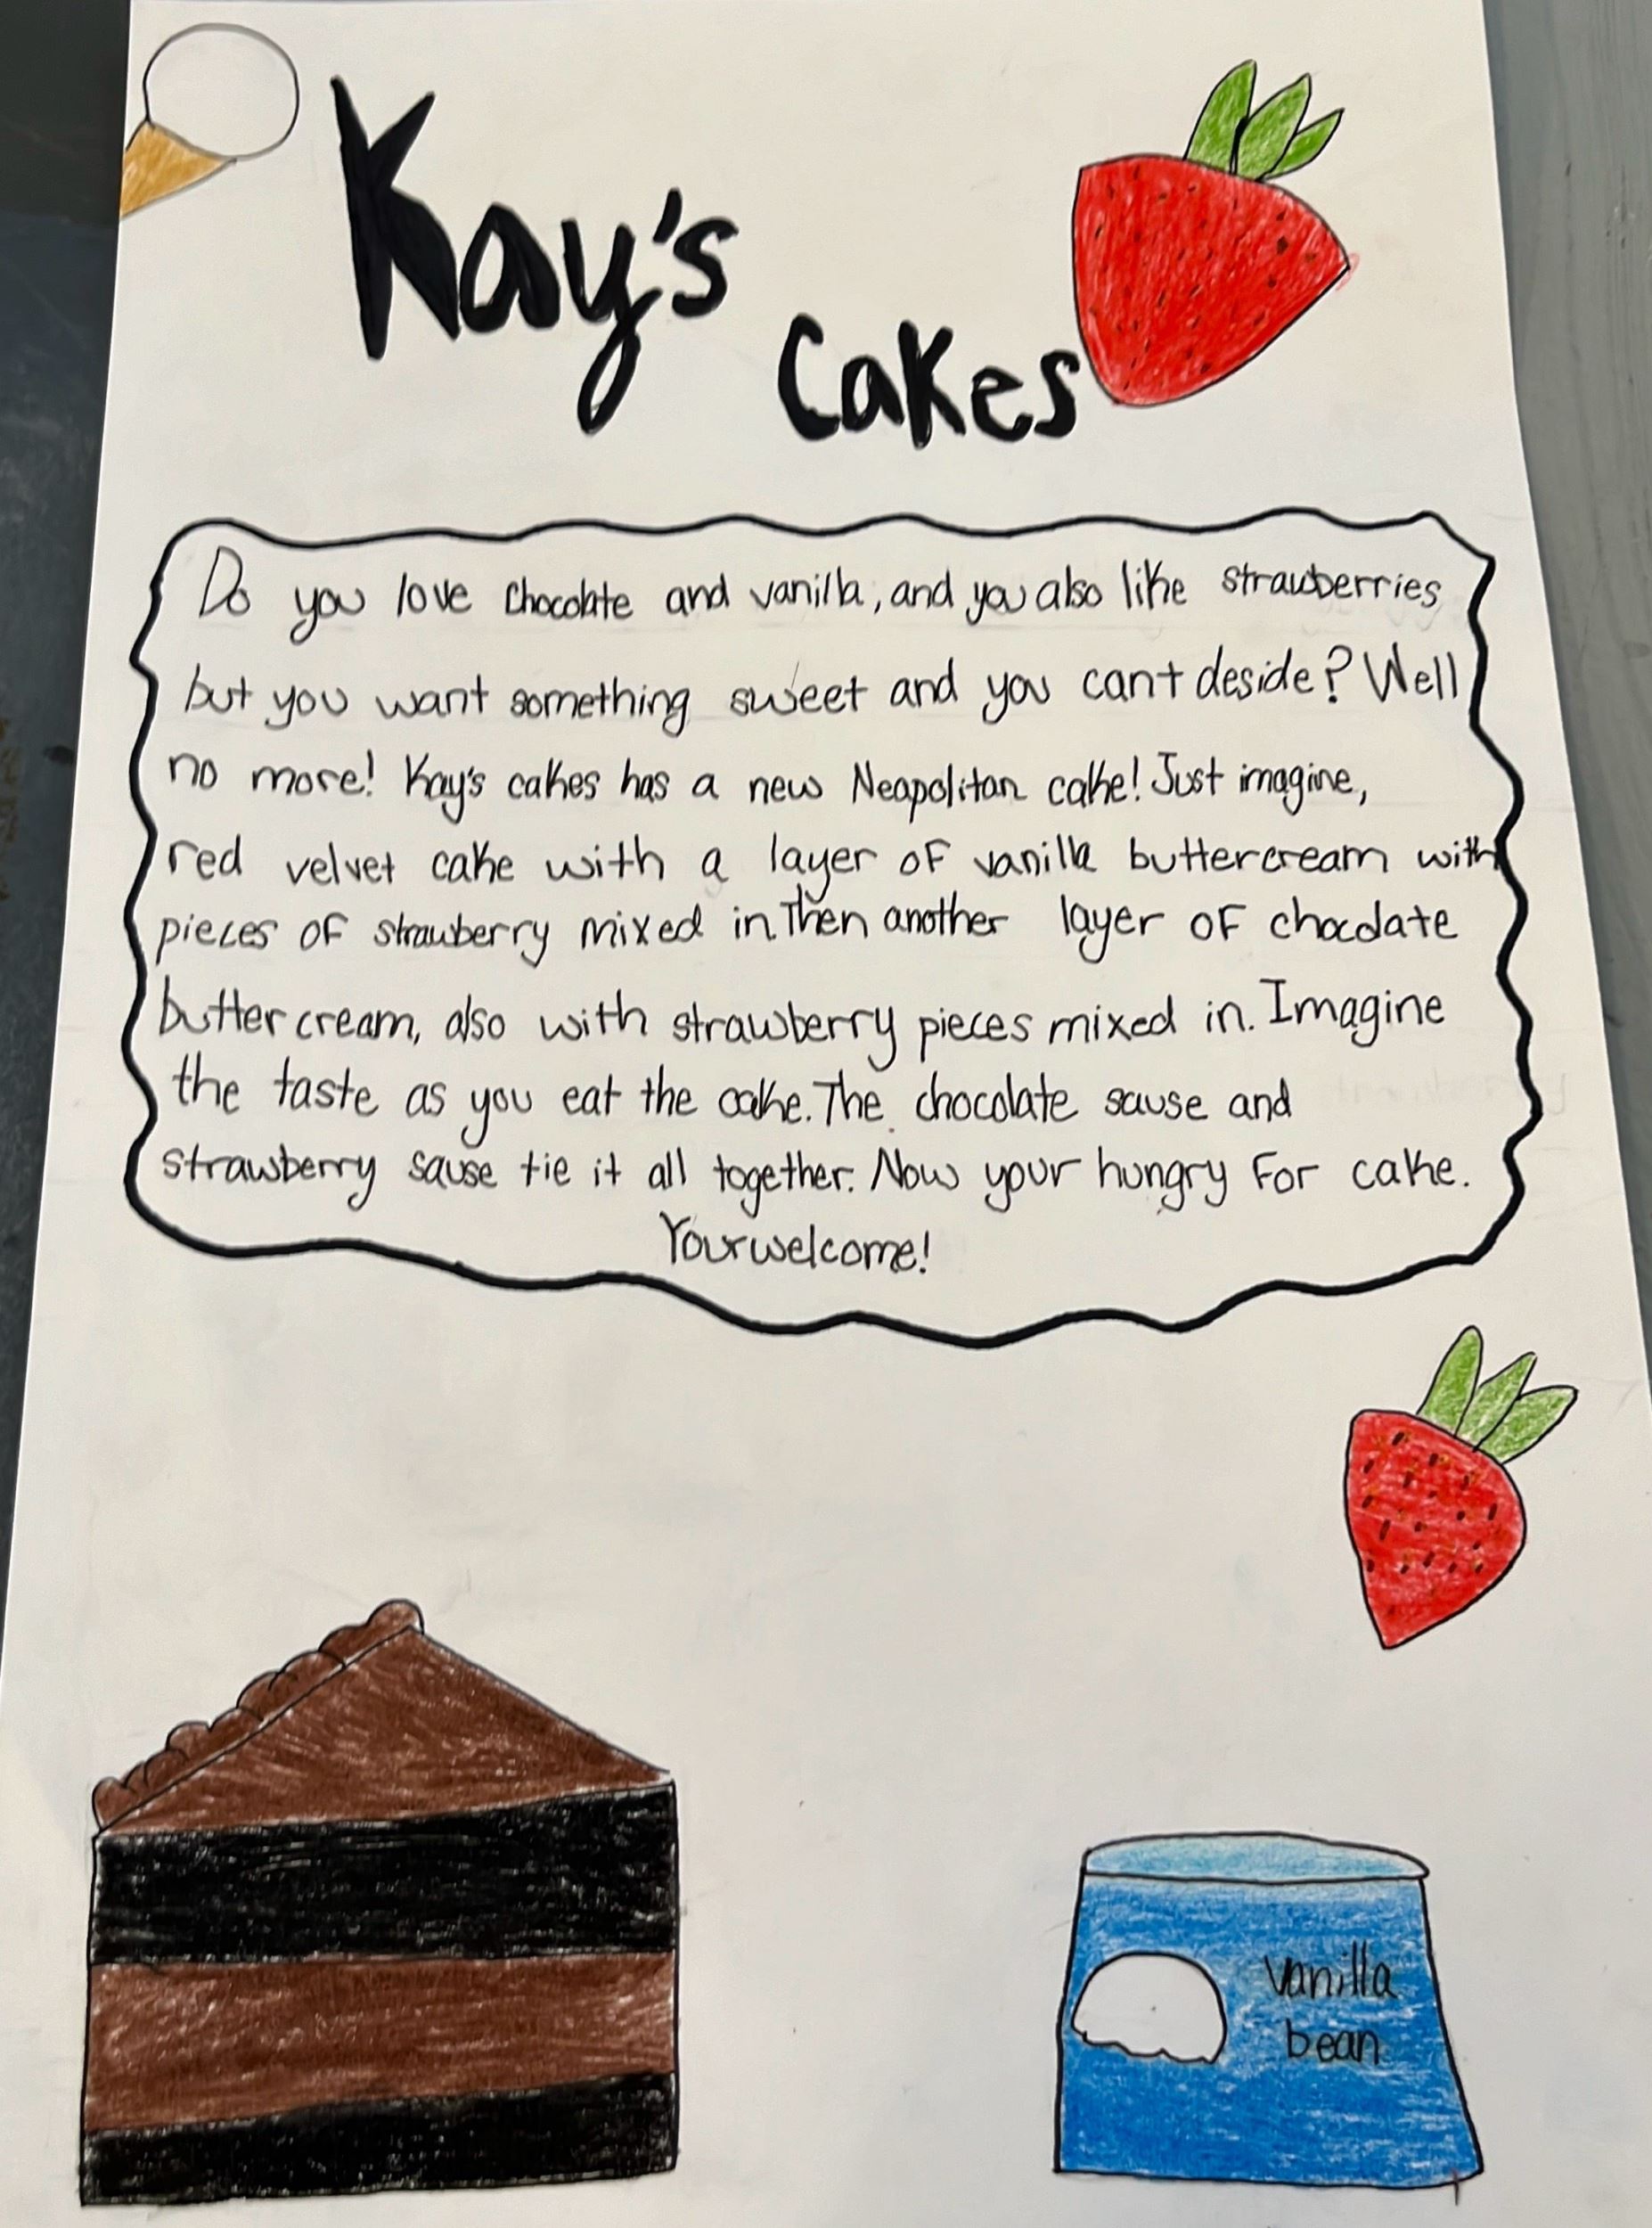 Kay's
Cakes
Do you love chocolate and vanilla, and you also like strawberries
but you want something sweet and you can't deside? Well
no more! Kay's cakes has a new Neapolitan cake! Just imagine,
red velvet cake with a layer of vanilla buttercream with
pieces of strawberry mixed in. Then another layer of chocolate
buttercream, also with strawberry pieces mixed in. Imagine
the taste as you eat the cake. The chocolate sause and
strawberry sause tie it all together. Now your hungry for cake.
Your welcome!
vanilla
bean